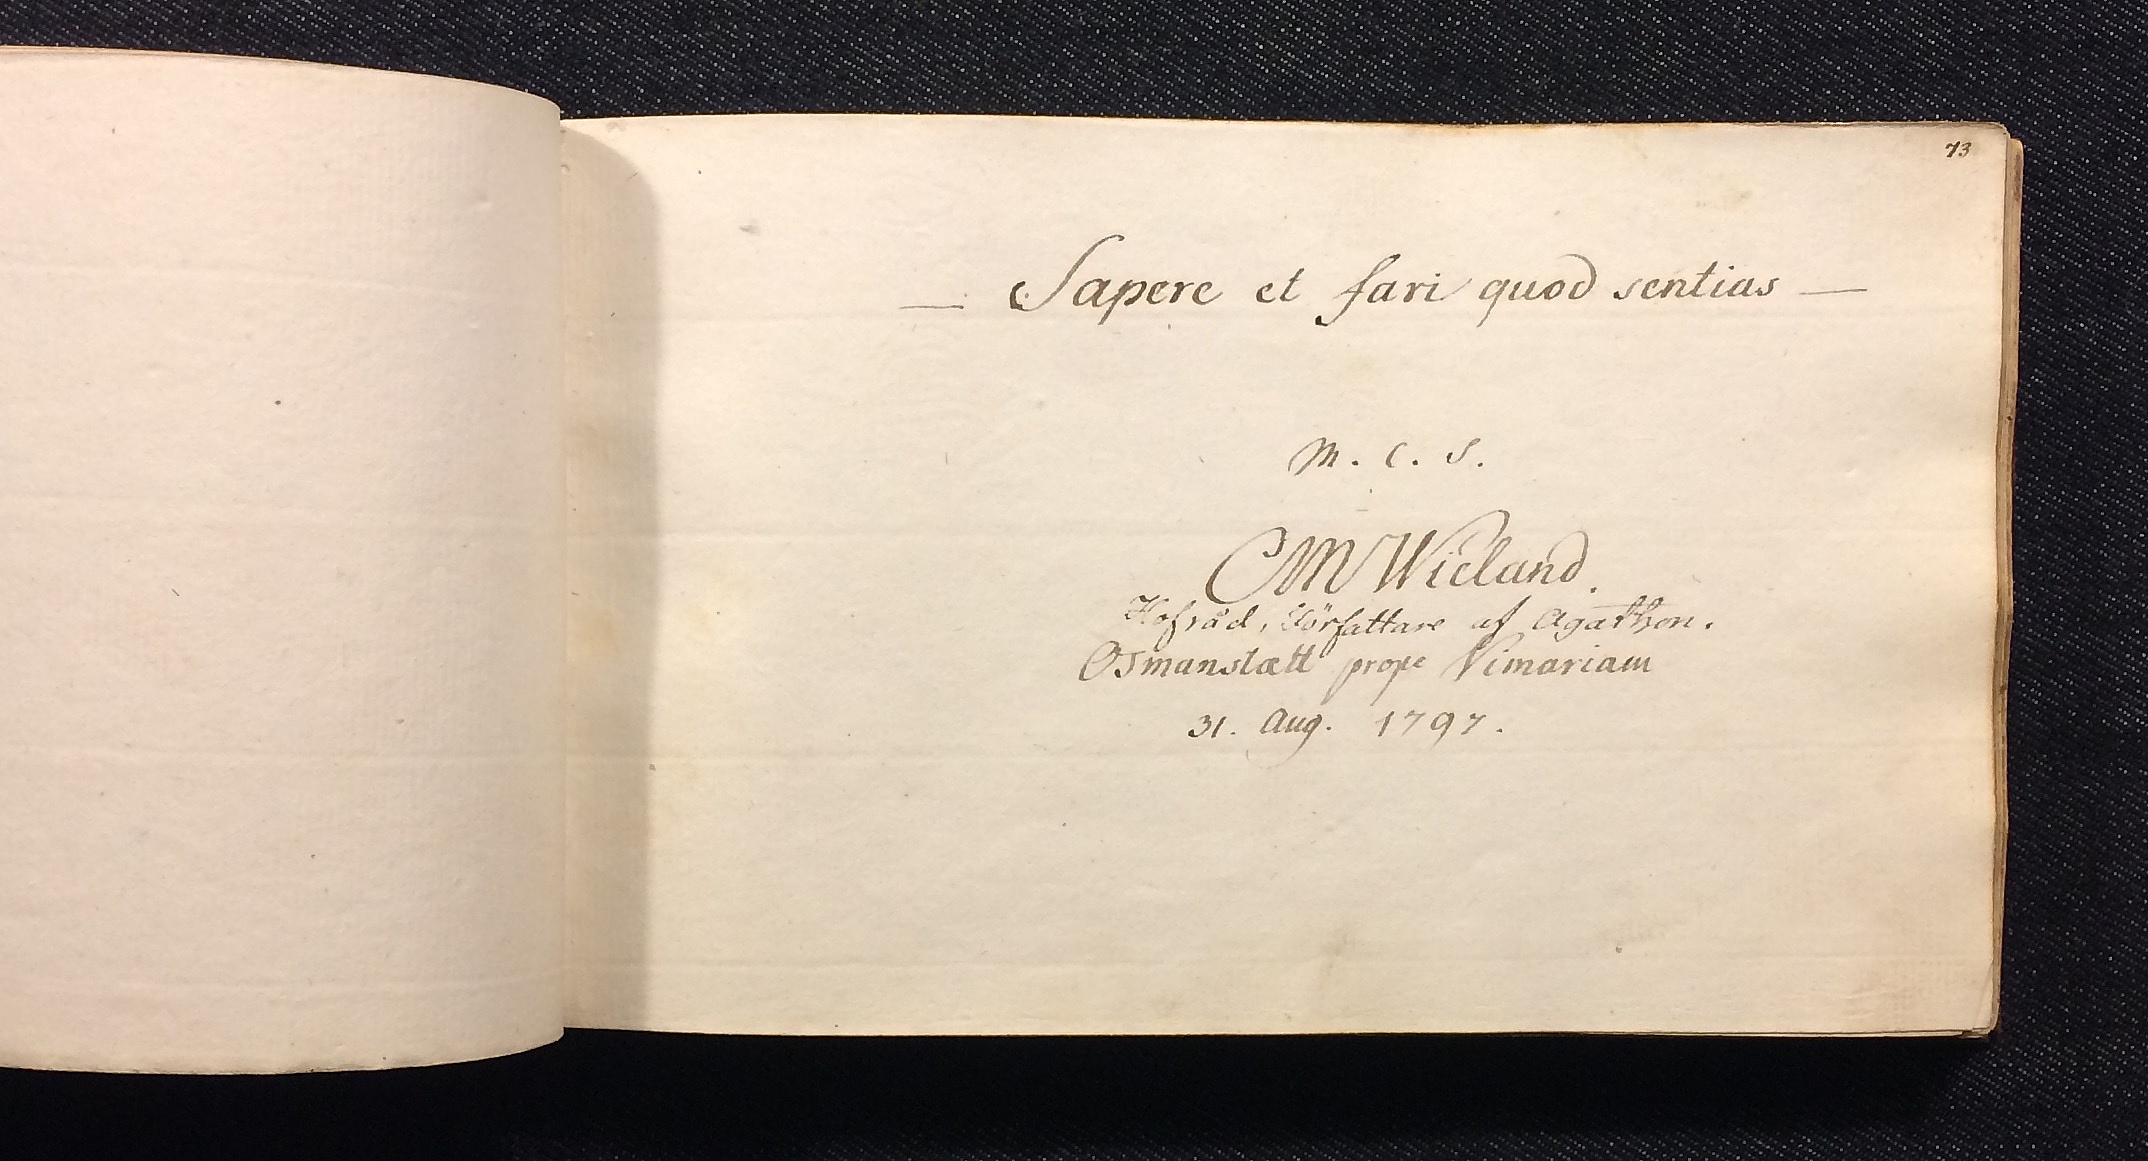 73
— Sapere et fari quod sentias —
M. C. S.
CM Wieland.
Hofråd, Författare af Agathon.
Osmanstætt prope Vimariam
31. Aug. 1797.